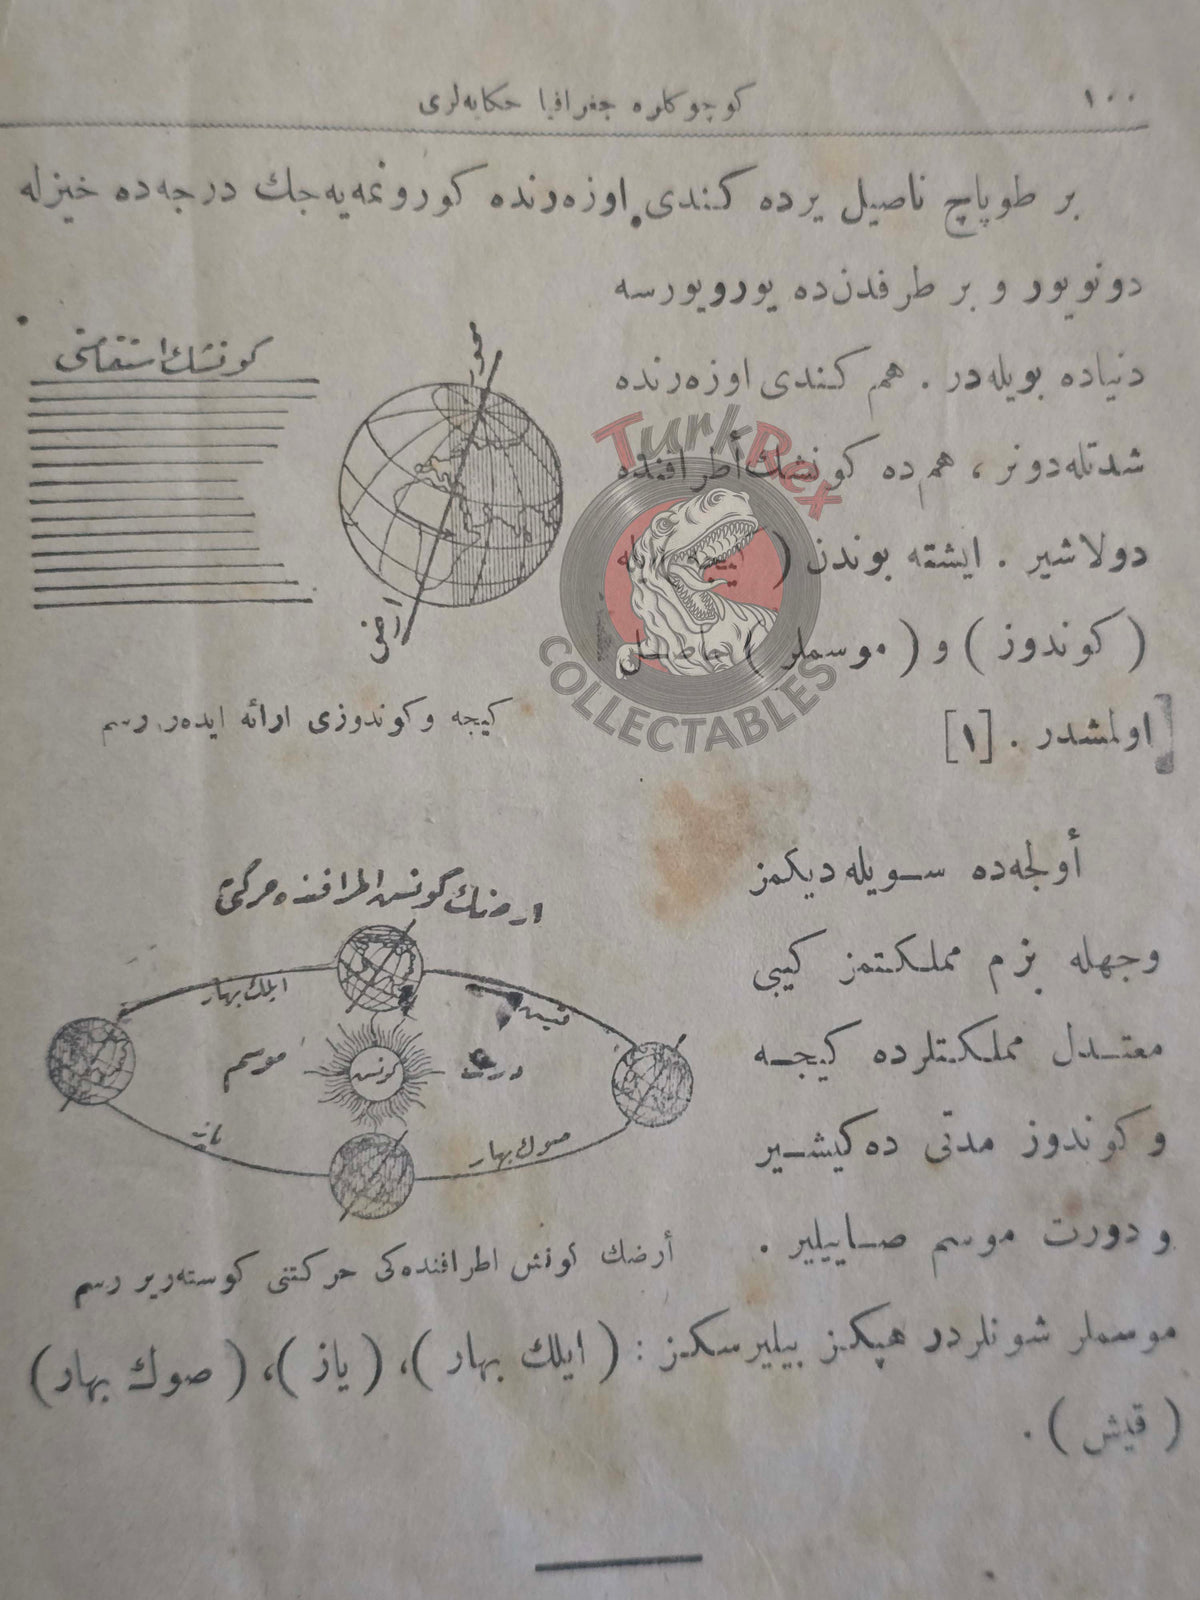 ١٠٠
كوچوكلره جغرافيا حكايه‌لرى
بر طوپاچ ناصيل يرده كندى اوزه‌رنده كورونمه‌يه‌جك درجه‌ده خيزله
دونويور و بر طرفدن‌ده يورويورسه
دنياده بويله‌در . هم كندى اوزه‌رنده
شدتله‌دونر ، هم‌ده كونشك أطرافنده
دولاشير . ايشته بوندن (
( كوندوز ) و ( موسملر ) حاصل
اولمشدر . [١]
كونشك استقامتى
كيجه و كوندوزى ارائه ايده‌ر رسم
TurkRex
COLLECTABLES
أولجه‌ده سويله‌ديكمز
وجهله بزم مملكتمز كيبى
معتدل مملكتلرده كيجه
و كوندوز مدتى ده‌كيشير
و دورت موسم صاييلير .
ارضك كونش اطرافنده حركتى
ايلك بهار
قيش
موسم
كونش
درت
ياز
صوك بهار
أرضك كونش اطرافنده‌كى حركتنى كوسته‌رير رسم
موسملر شونلردر هپكز بيليرسكز : ( ايلك بهار )، ( ياز )، ( صوك بهار )
( قيش ) .